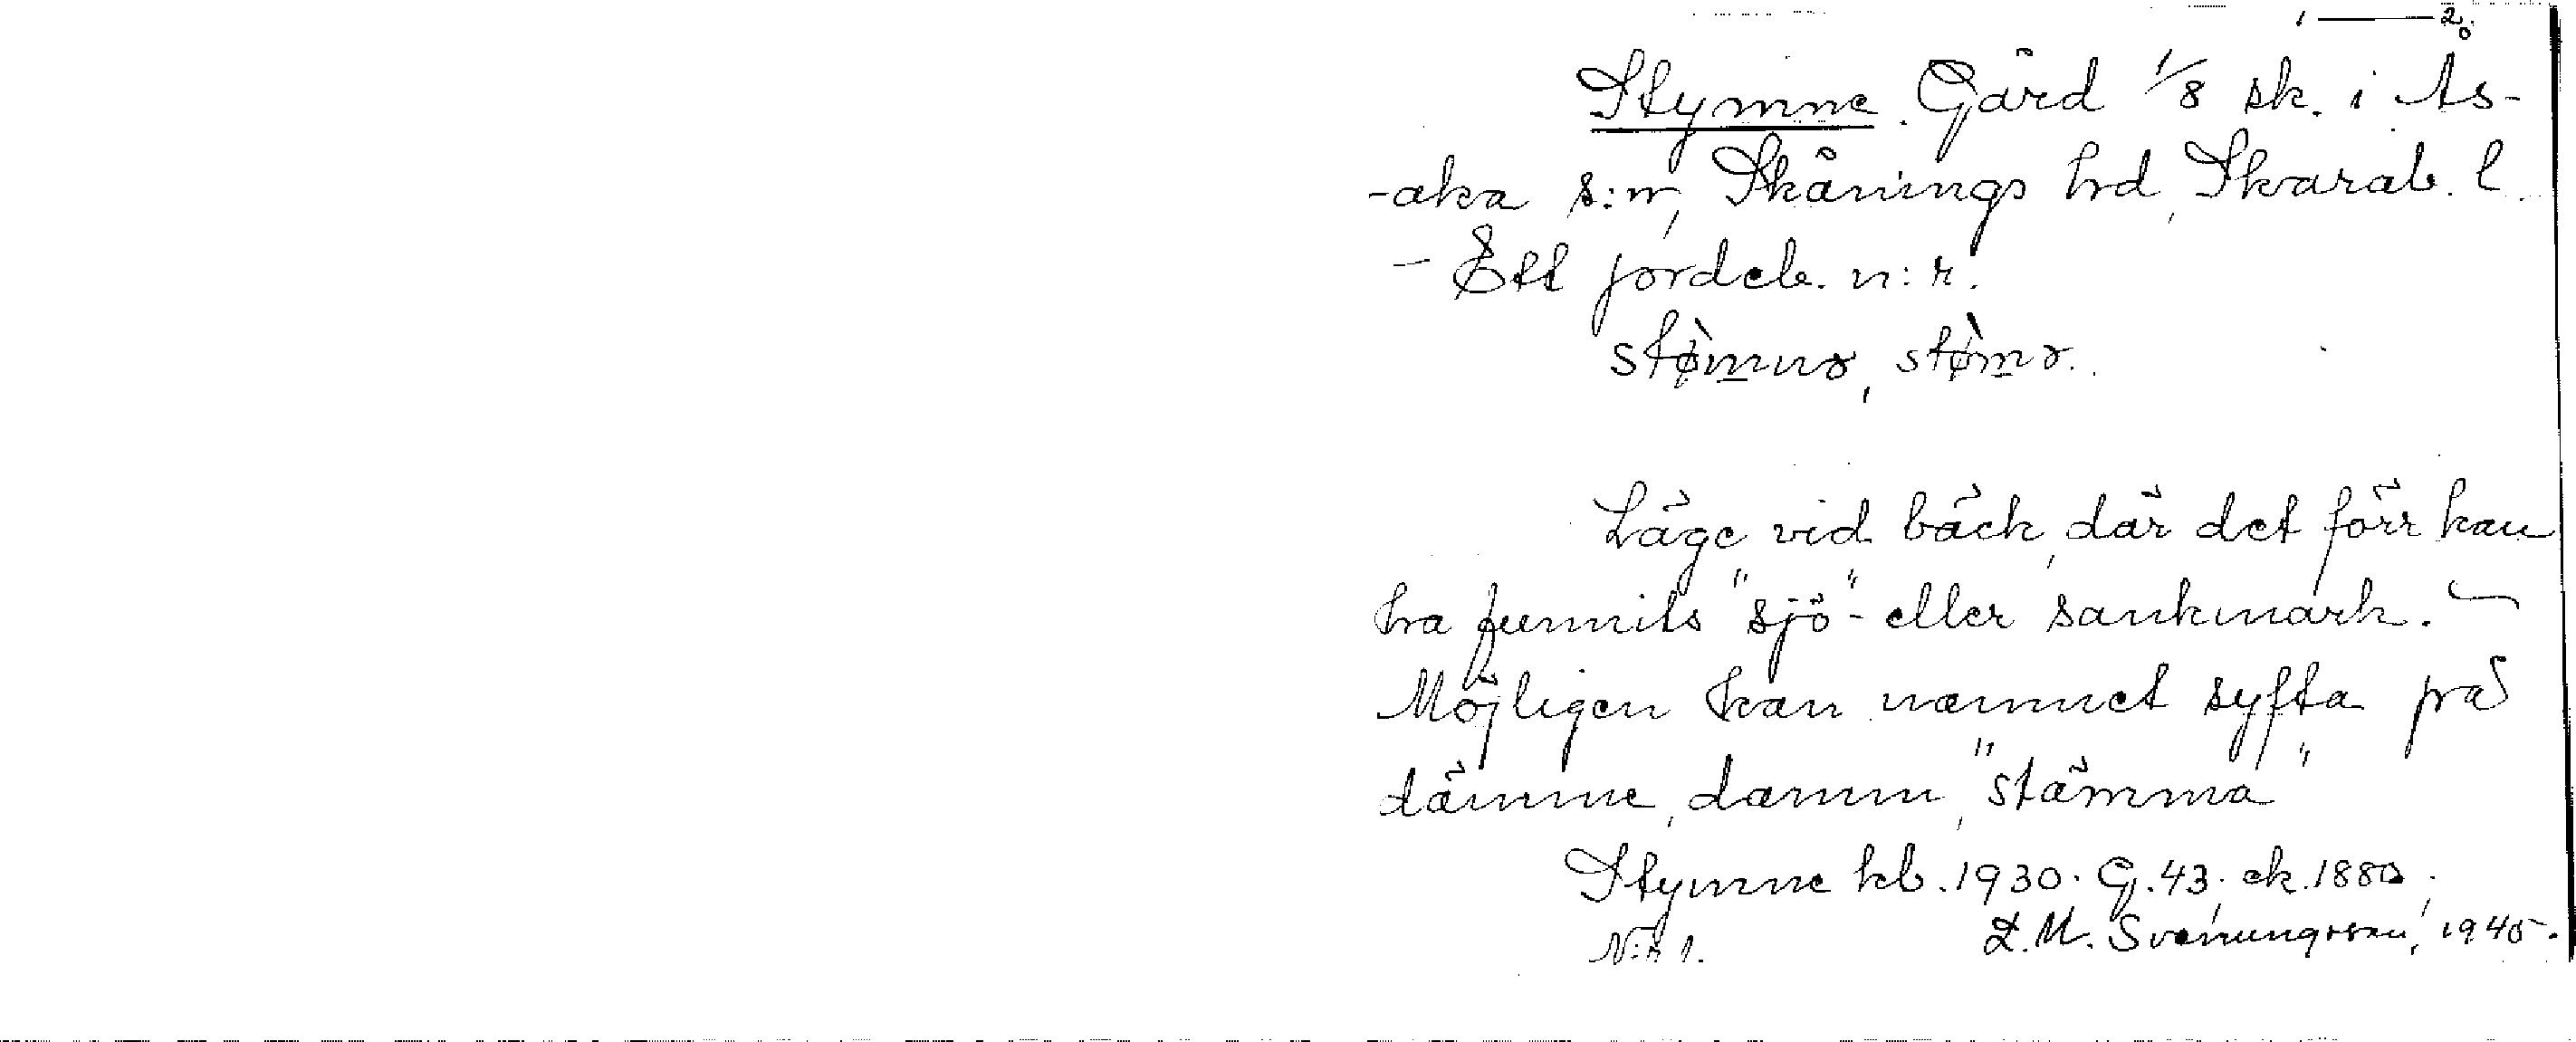 1 — 2.
Stymne. Gård 1/8 sk. i As-
-aka s:n, Skånings hd, Skarab. l.
- Ett jordeb. n:r.
stø̀mnə, stø̀mə.
Läge vid bäck, där det förr kan
ha funnits "sjö"- eller sankmark. –
Möjligen kan namnet syfta på
dämme, damm, "stämma"
Stymne kb. 1930. G. 43. ek. 1880.
N:r 1. L. M. Svenungsson, 1945.